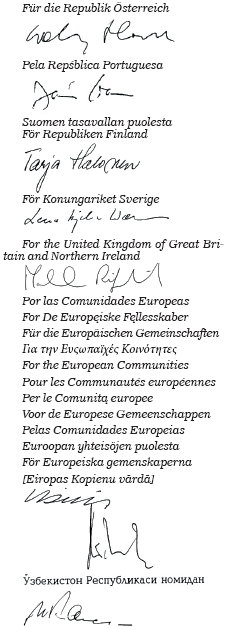 Für die Republik Österreich
Pela Repśblica Portuguesa
Suomen tasavallan puolesta
För Republiken Finland
Tarja Halonen
För Konungariket Sverige
For the United Kingdom of Great Bri-
tain and Northern Ireland
Por las Comunidades Europeas
For De Europęiske Fęllesskaber
Für die Europäischen Gemeinschaften
Για την Ευςωπαϊχές Κοινότητες
For the European Communities
Pour les Communautés européennes
Per le Comunitą europee
Voor de Europese Gemeenschappen
Pelas Comunidades Europeias
Euroopan yhteisöjen puolesta
För Europeiska gemenskaperna
[Eiropas Kopienu vārdā]
Ўзбекистон Республикаси номидан